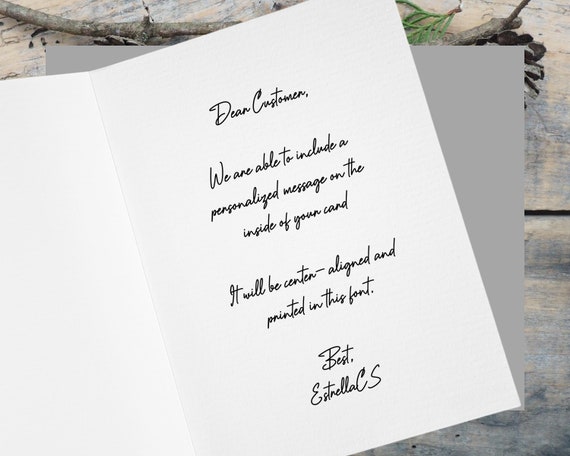 Dear Customer,
We are able to include a
personalized message on the
inside of your card
It will be center- aligned and
printed in this font.
Best,
EstrellaCS